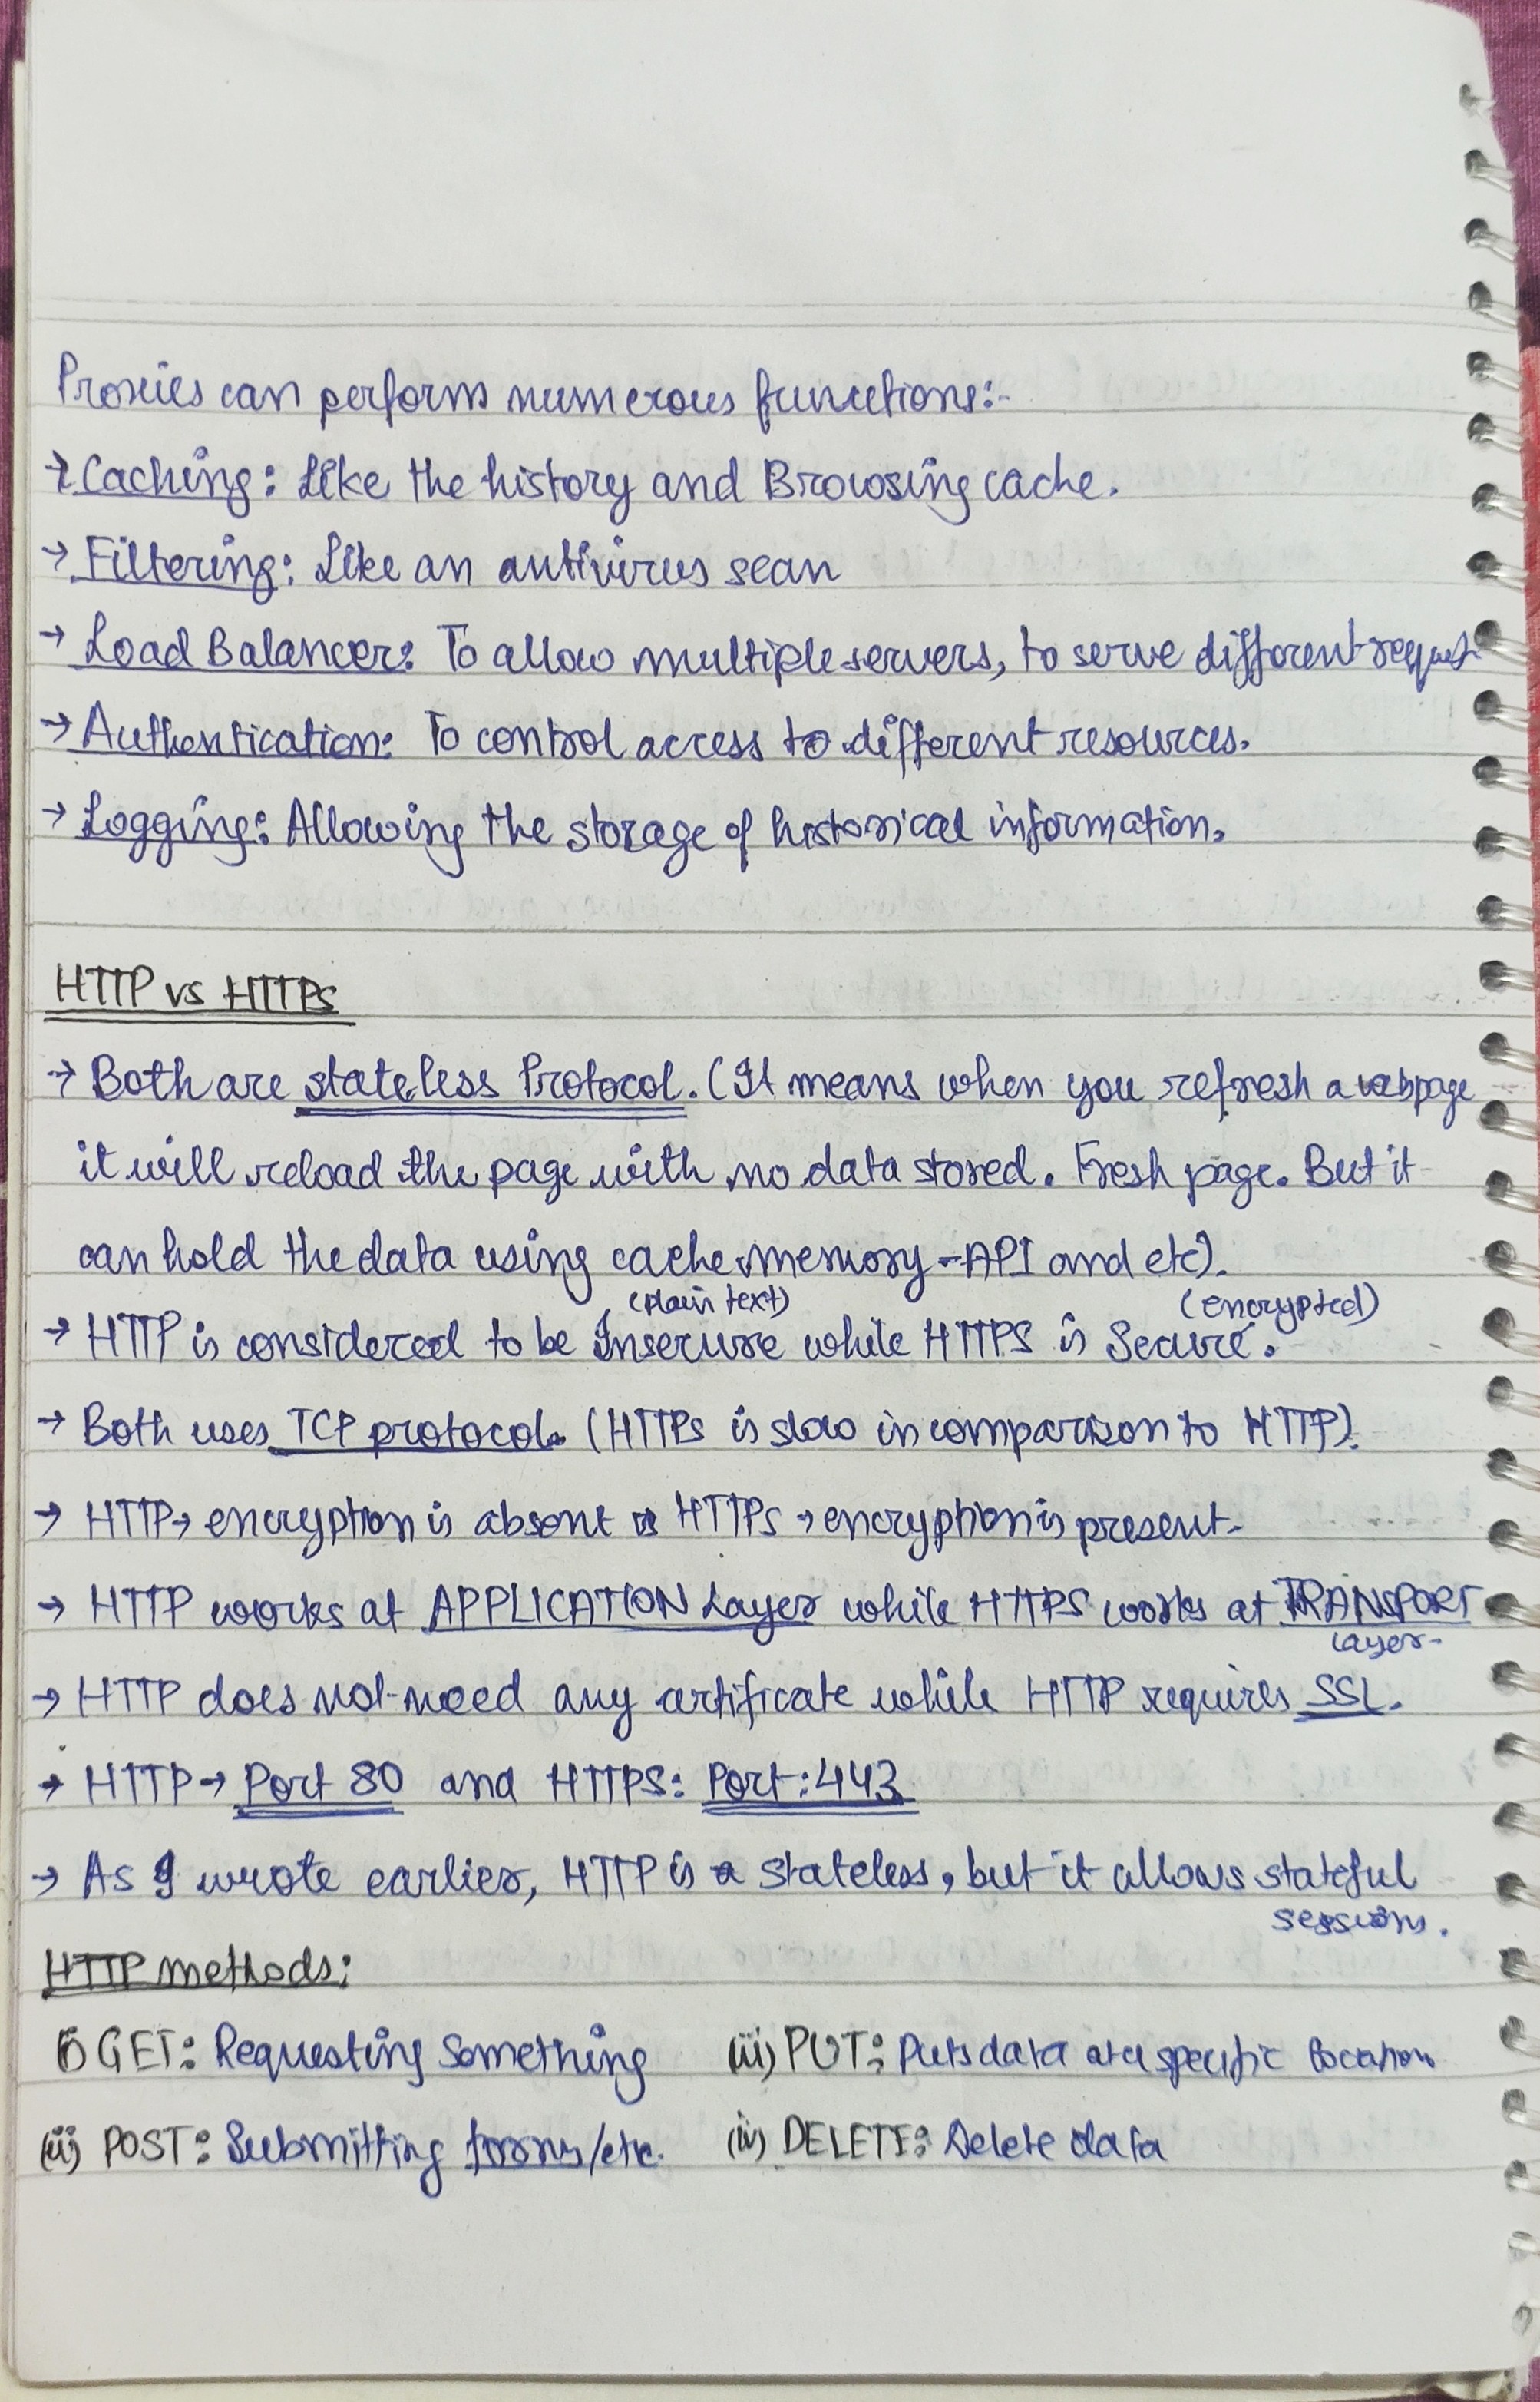 Proxies can perform numerous functions:-
→ Caching: Like the history and Browsing cache.
→ Filtering: Like an antivirus scan
→ Load Balancer: To allow multiple servers, to serve different request
→ Authentication: To control access to different resources.
→ Logging: Allowing the storage of historical information.
HTTP vs HTTPS
→ Both are stateless Protocol. (It means when you refresh a webpage
it will reload the page with no data stored. Fresh page. But it
can hold the data using cache memory - API and etc).
(plain text) (encrypted)
→ HTTP is considered to be Insecure while HTTPS is Secure.
→ Both uses TCP protocol. (HTTPs is slow in comparison to HTTP).
→ HTTP → encryption is absent HTTPs → encryption is present.
→ HTTP works at APPLICATION Layer while HTTPS works at TRANSPORT
layer-
→ HTTP does not need any certificate while HTTP requires SSL.
→ HTTP → Port 80 and HTTPS: Port: 443
→ As I wrote earlier, HTTP is a stateless, but it allows stateful
sessions.
HTTP methods:
i) GET: Requesting Something (iii) PUT: Puts data at a specific location
(ii) POST: Submitting forms/etc. (iv) DELETE: Delete data